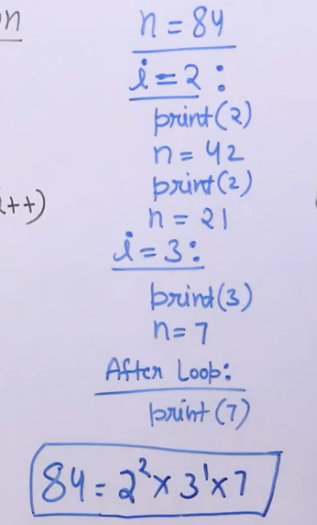 n
n = 84
i = 2 :
print(2)
n = 42
print(2)
n = 21
i++)
i = 3 :
print(3)
n = 7
After Loop:
print(7)
84 = 2² × 3¹ × 7